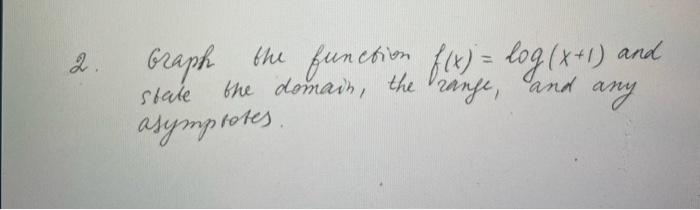 2. Graph the function f(x) = log(x+1) and
state the domain, the range, and any
asymptotes.